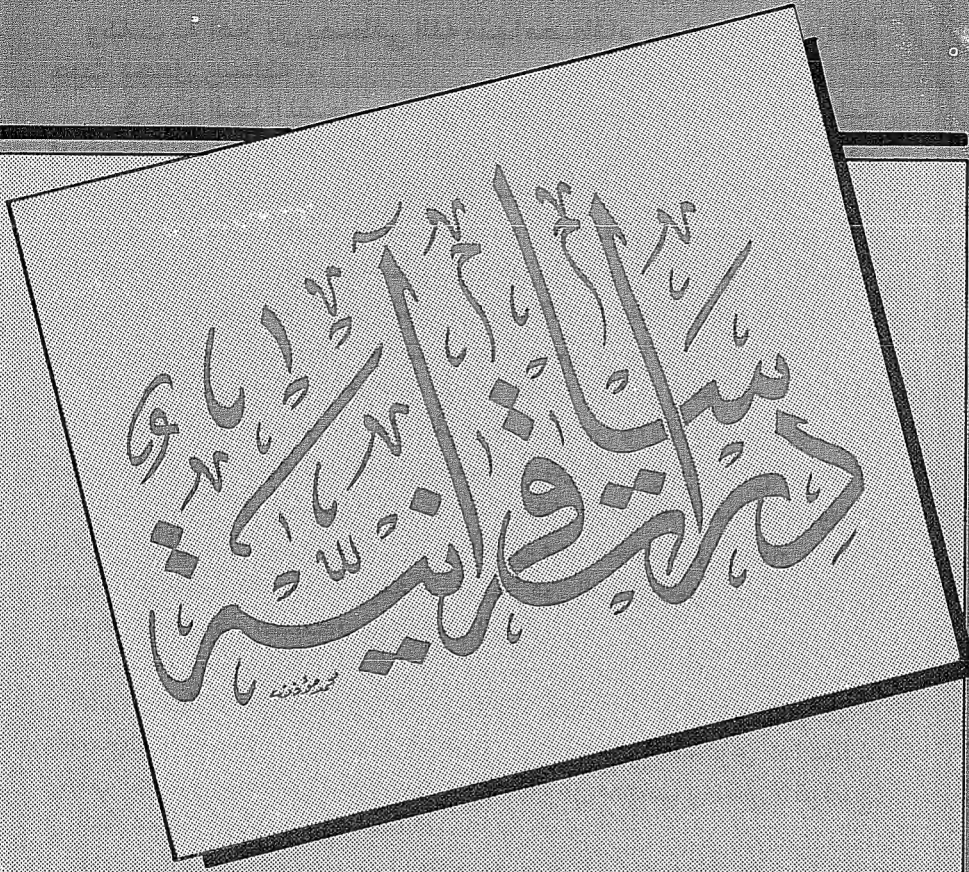 دراسات قرآنية